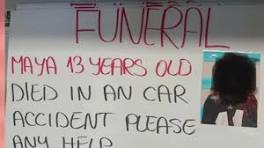 FUNERAL
MAYA 13 YEARS OLD
DIED IN AN CAR
ACCIDENT PLEASE
ANY HELP